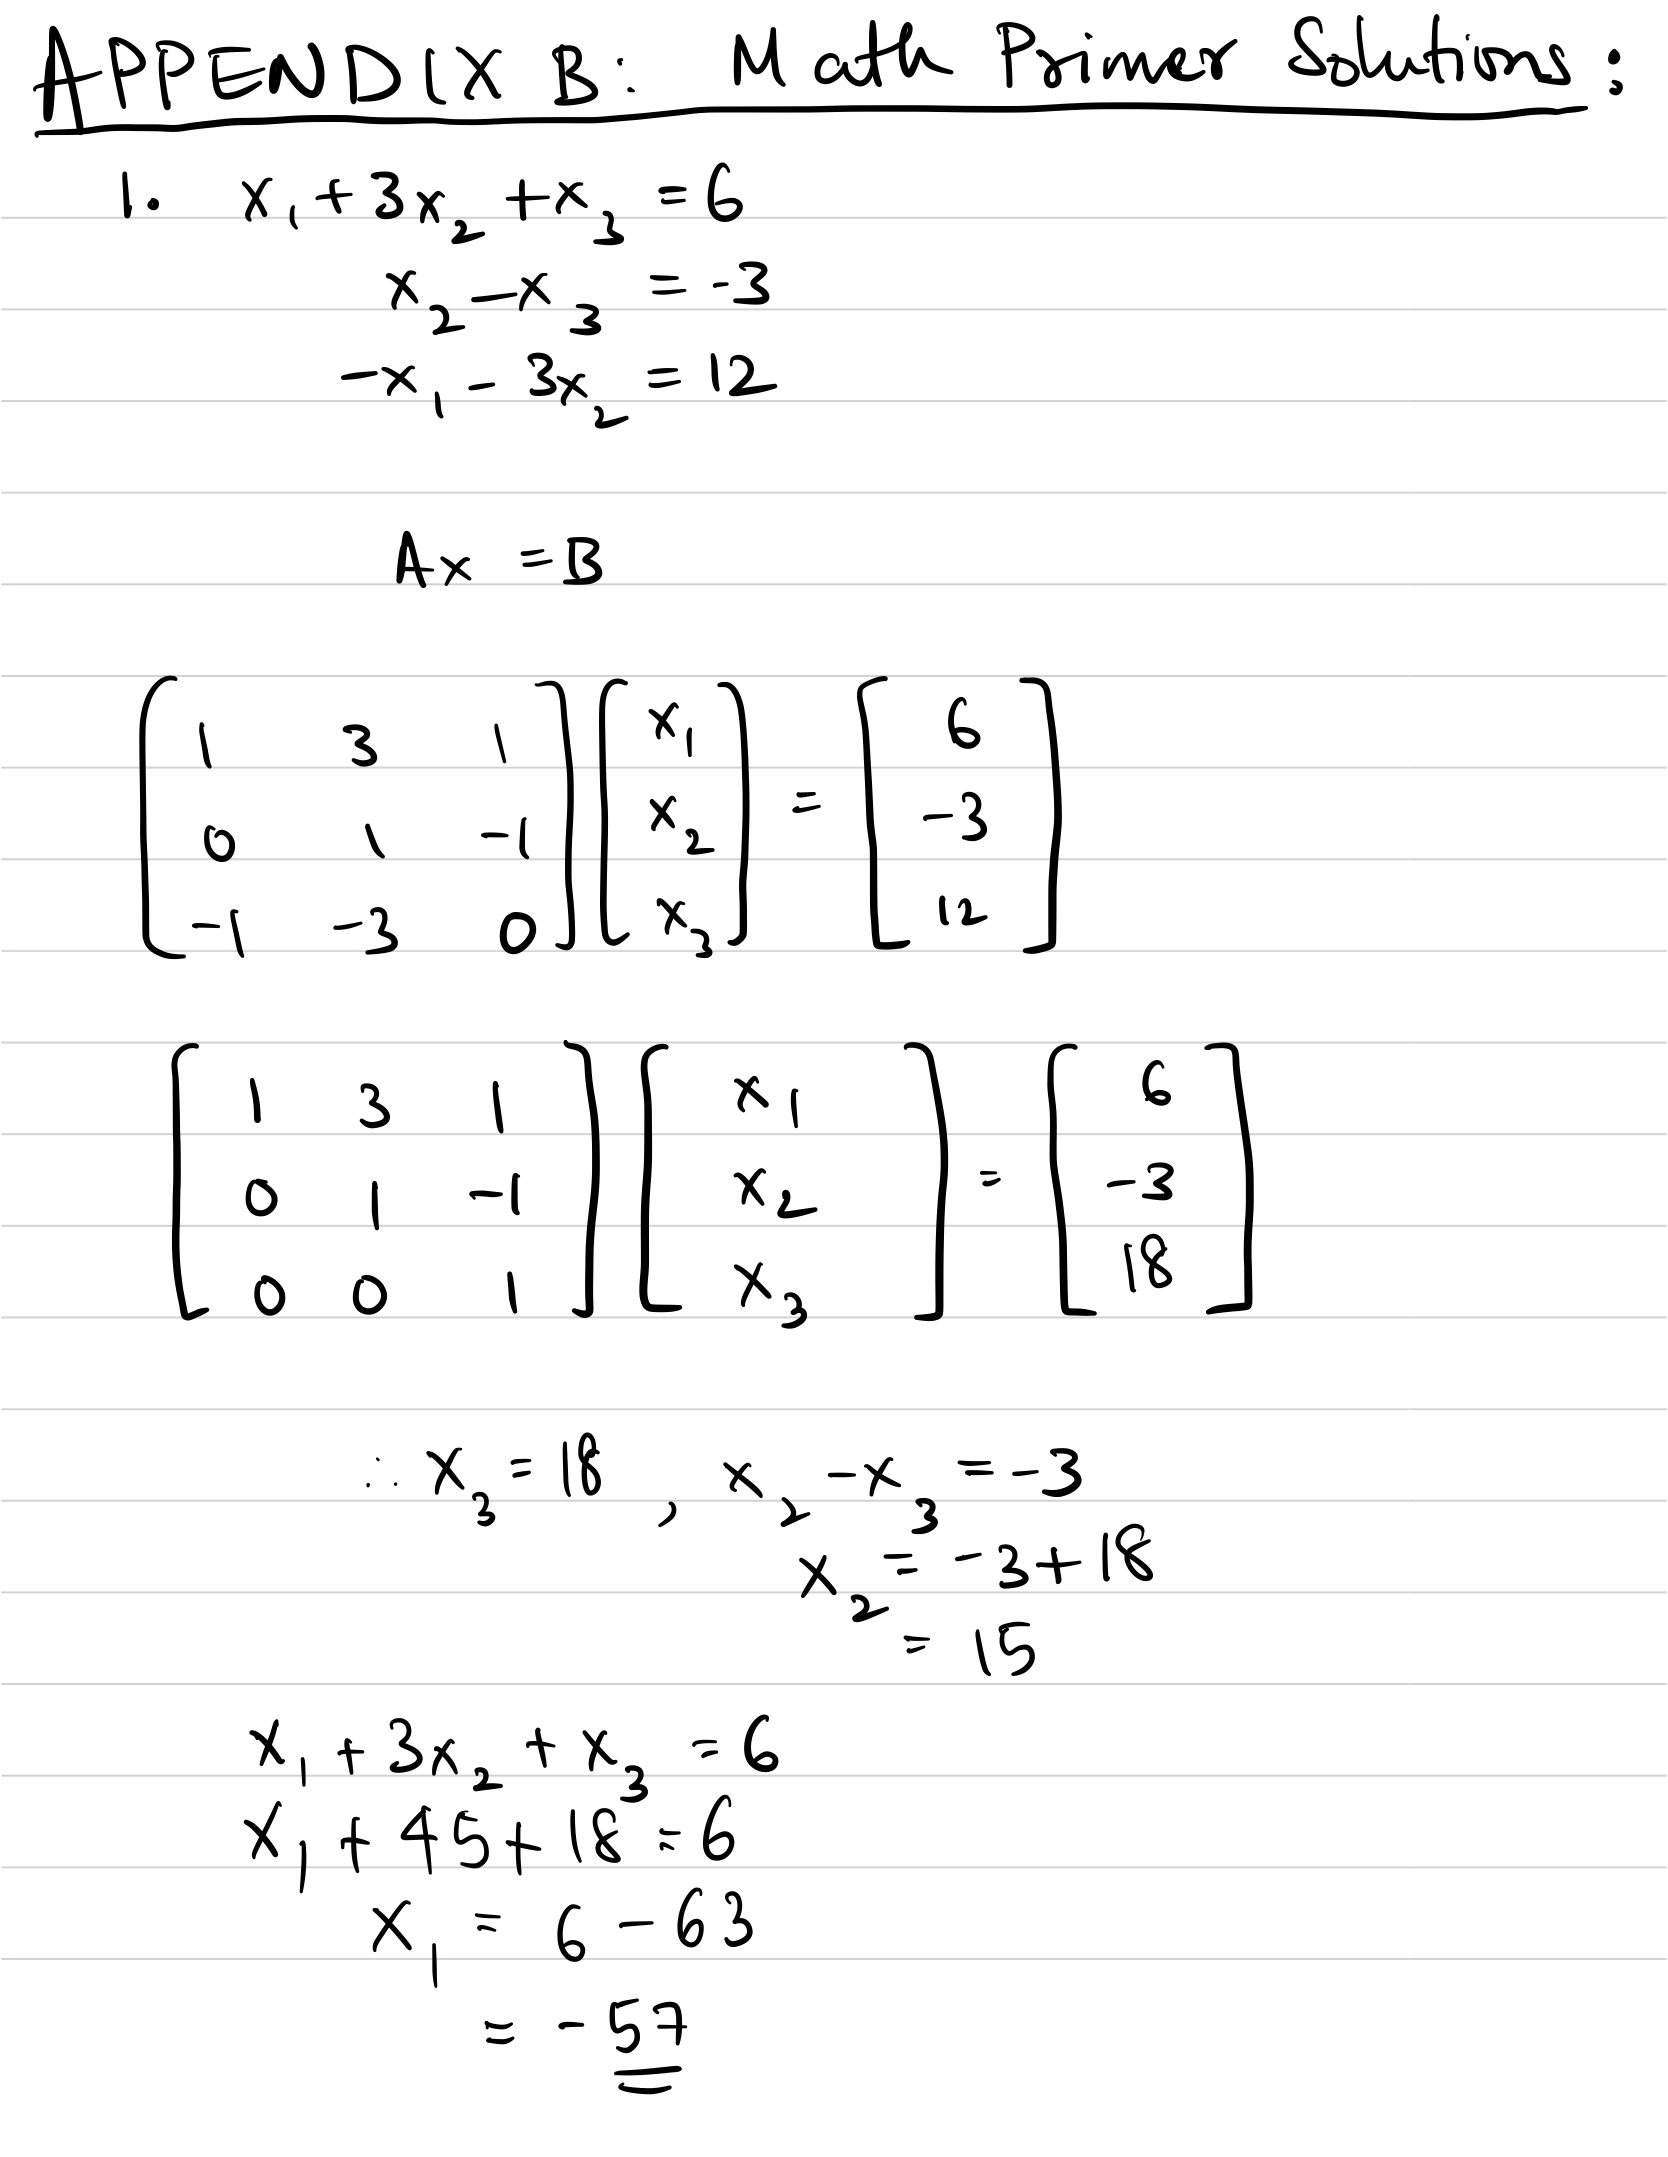 APPENDIX B: Math Primer Solutions:
1. x₁ + 3x₂ + x₃ = 6
x₂ - x₃ = -3
-x₁ - 3x₂ = 12
Ax = B
[1 3 1] [x₁] = [6]
[0 1 -1] [x₂] = [-3]
[-1 -3 0] [x₃] = [12]
[1 3 1] [x₁] = [6]
[0 1 -1] [x₂] = [-3]
[0 0 1] [x₃] = [18]
∴ x₃ = 18, x₂ - x₃ = -3
x₂ = -3 + 18
= 15
x₁ + 3x₂ + x₃ = 6
x₁ + 45 + 18 = 6
x₁ = 6 - 63
= -57